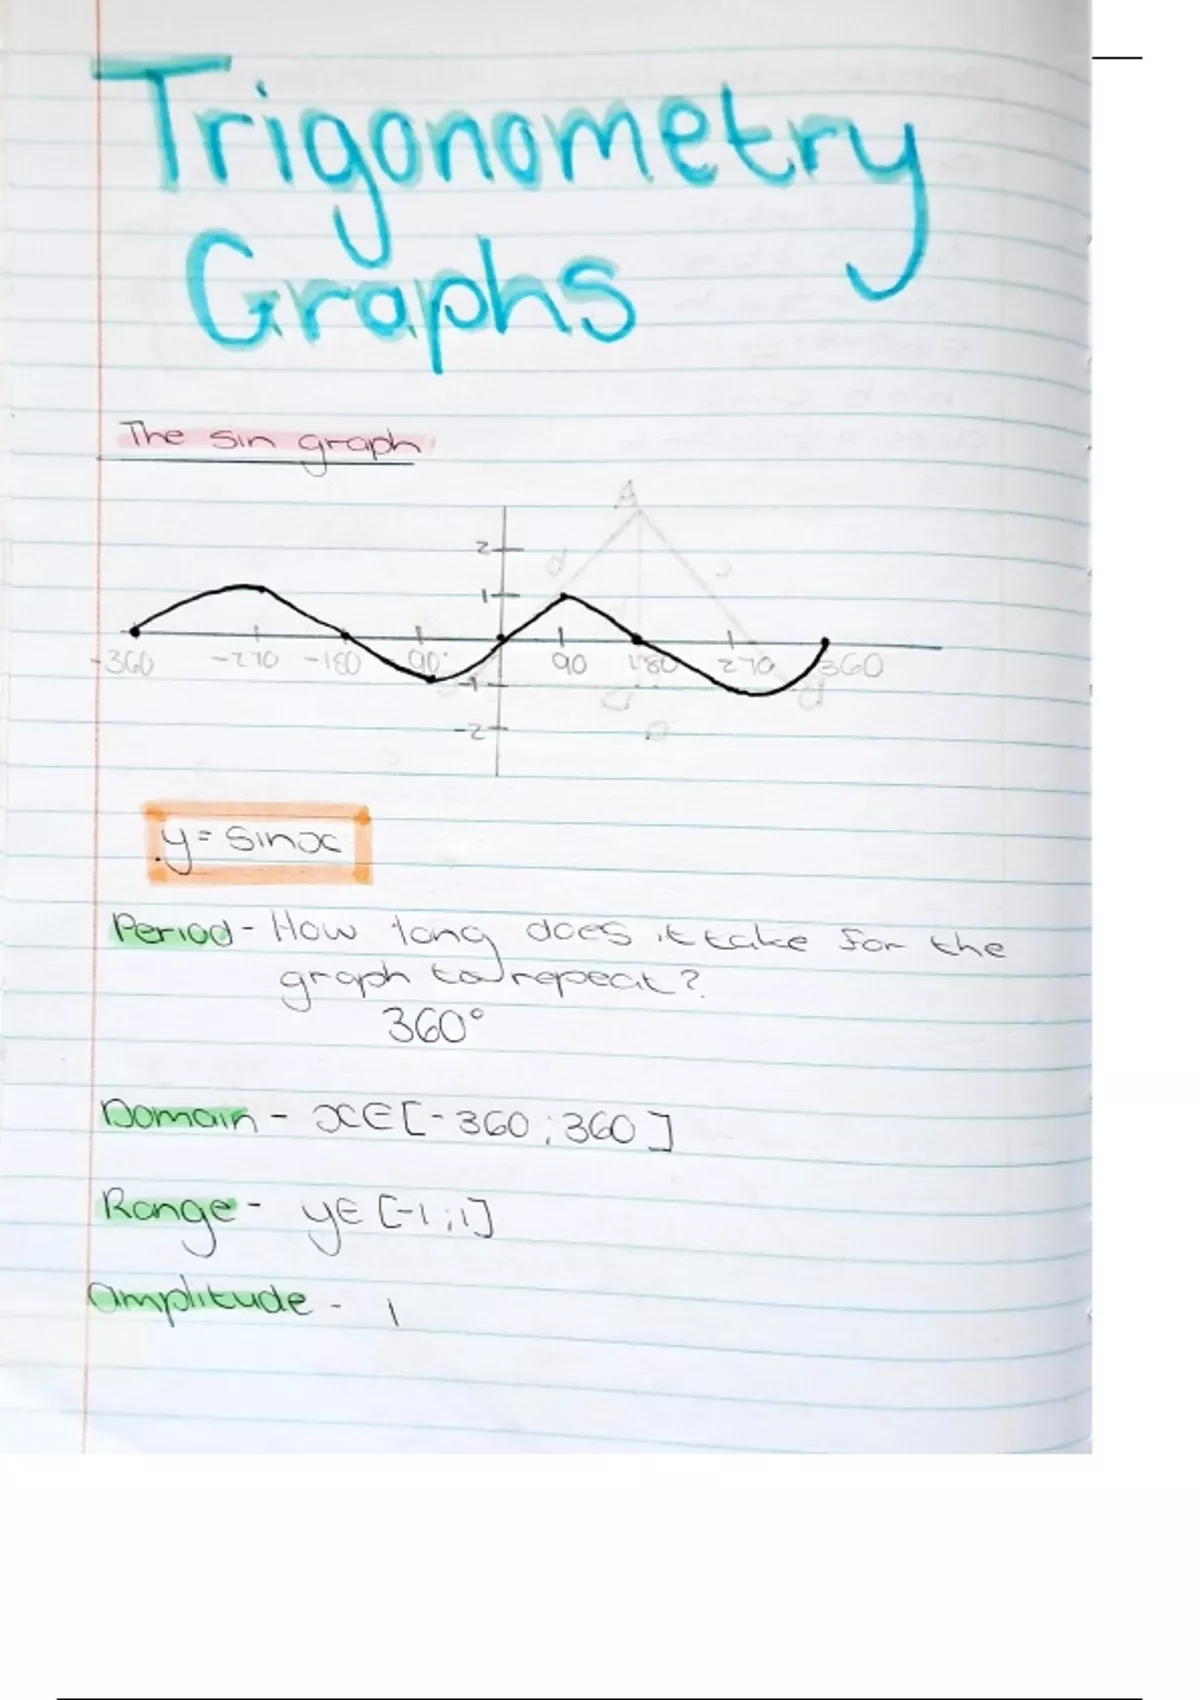 Trigonometry
Graphs
The sin graph
2
1
-360 -270 -180 90 90 180 270 360
-1
-2
y = sinx
Period - How long does it take for the
graph to repeat?
360°
Domain - x∈[-360;360]
Range - y∈[-1;1]
amplitude - 1